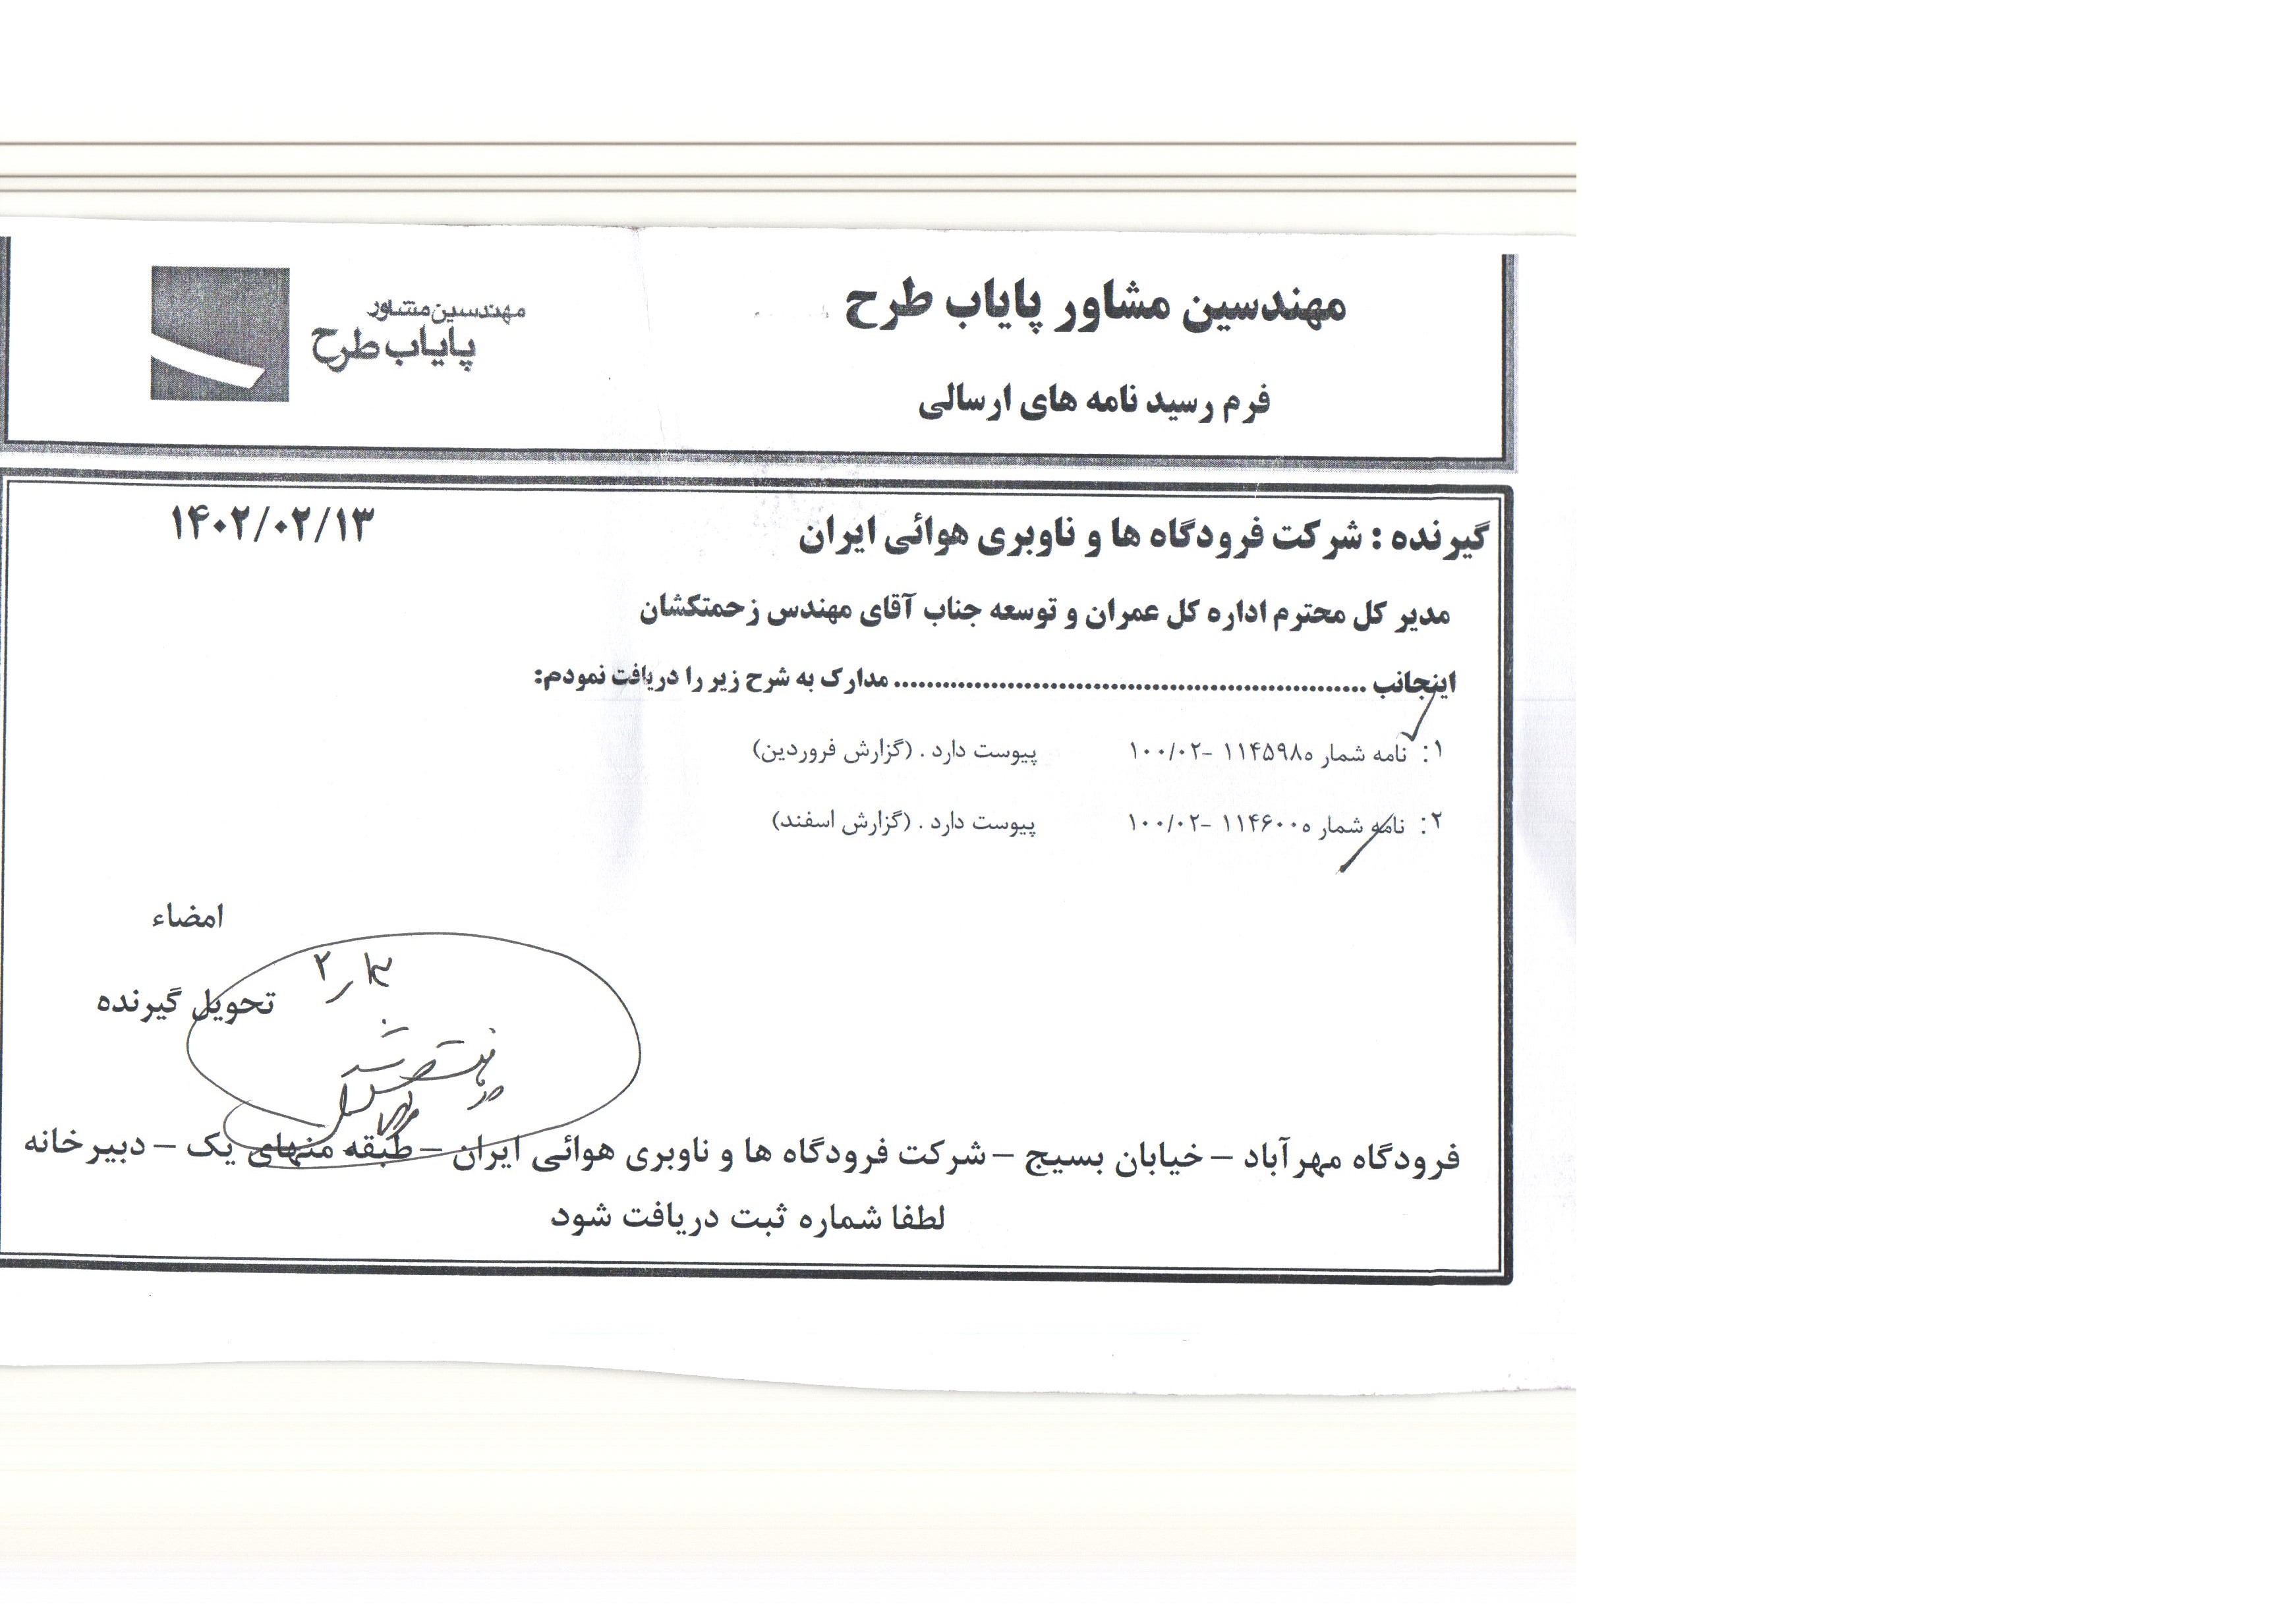 مهندسین مشاور پایاب طرح
مهندسین مشاور
پایاب طرح
فرم رسید نامه های ارسالی
گیرنده : شرکت فرودگاه ها و ناوبری هوائی ایران
۱۴۰۲/۰۲/۱۳
مدیر کل محترم اداره کل عمران و توسعه جناب آقای مهندس زحمتکشان
اینجانب ........................................................ مدارک به شرح زیر را دریافت نمودم:
۱: نامه شماره ۱۱۴۵۹۸ -۱۰۰/۰۲ پیوست دارد . (گزارش فروردین)
۲: نامه شماره ۱۱۴۶۰۰ -۱۰۰/۰۲ پیوست دارد . (گزارش اسفند)
امضاء
تحویل گیرنده
فرودگاه مهرآباد – خیابان بسیج – شرکت فرودگاه ها و ناوبری هوائی ایران – طبقه منهای یک – دبیرخانه
لطفا شماره ثبت دریافت شود